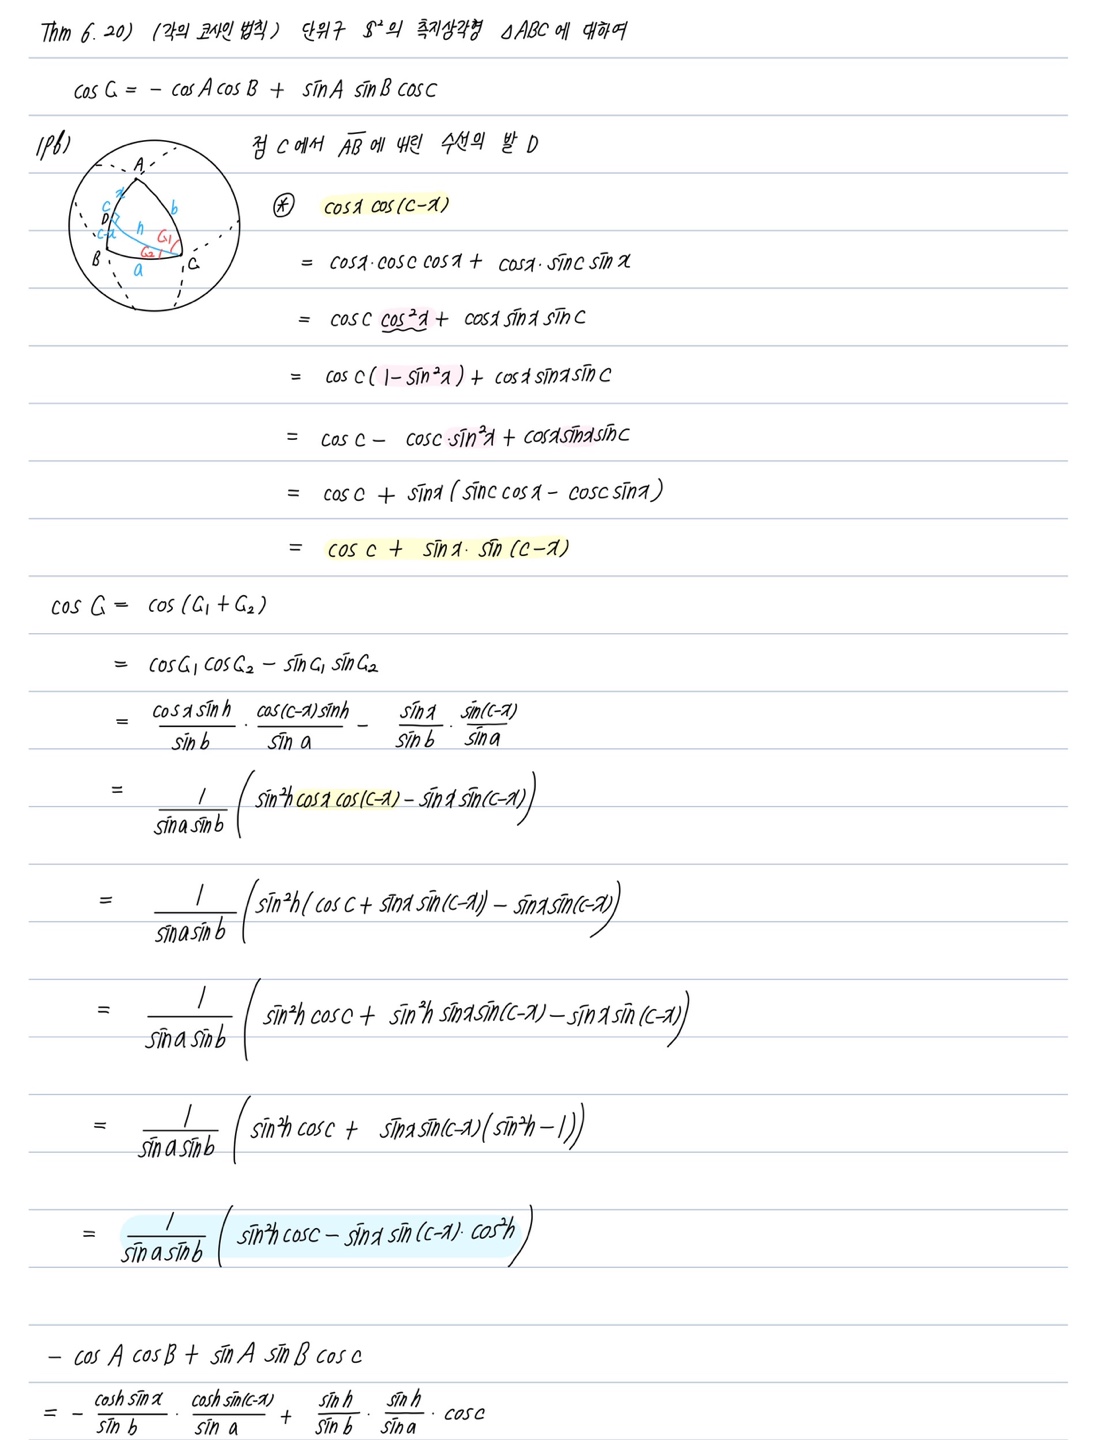 Thm 6.20) (각의 코사인 법칙) 단위구 S²의 측지삼각형 △ABC에 대하여
cos C = - cos A cos B + sin A sin B cos c
(pf)
점 C에서 \overline{AB}에 내린 수선의 발 D
A
x
c
b
D
h
C₁
c-x
C₂
B
C
a
⊛ cos x cos(c-x)
= cos x · cos c cos x + cos x · sin c sin x
= cos c cos²x + cos x sin x sin c
= cos c (1 - sin²x) + cos x sin x sin c
= cos c - cos c · sin²x + cos x sin x sin c
= cos c + sin x (sin c cos x - cos c sin x)
= cos c + sin x · sin (c-x)
cos C = cos (C₁ + C₂)
= cos C₁ cos C₂ - sin C₁ sin C₂
= \frac{cos x sin h}{sin b} · \frac{cos(c-x) sin h}{sin a} - \frac{sin x}{sin b} · \frac{sin(c-x)}{sin a}
= \frac{1}{sin a sin b} (sin²h cos x cos(c-x) - sin x sin(c-x))
= \frac{1}{sin a sin b} (sin²h (cos c + sin x sin(c-x)) - sin x sin(c-x))
= \frac{1}{sin a sin b} (sin²h cos c + sin²h sin x sin(c-x) - sin x sin(c-x))
= \frac{1}{sin a sin b} (sin²h cos c + sin x sin(c-x) (sin²h - 1))
= \frac{1}{sin a sin b} (sin²h cos c - sin x sin (c-x) · cos²h)
- cos A cos B + sin A sin B cos c
= - \frac{cos h sin x}{sin b} · \frac{cos h sin(c-x)}{sin a} + \frac{sin h}{sin b} · \frac{sin h}{sin a} · cos c